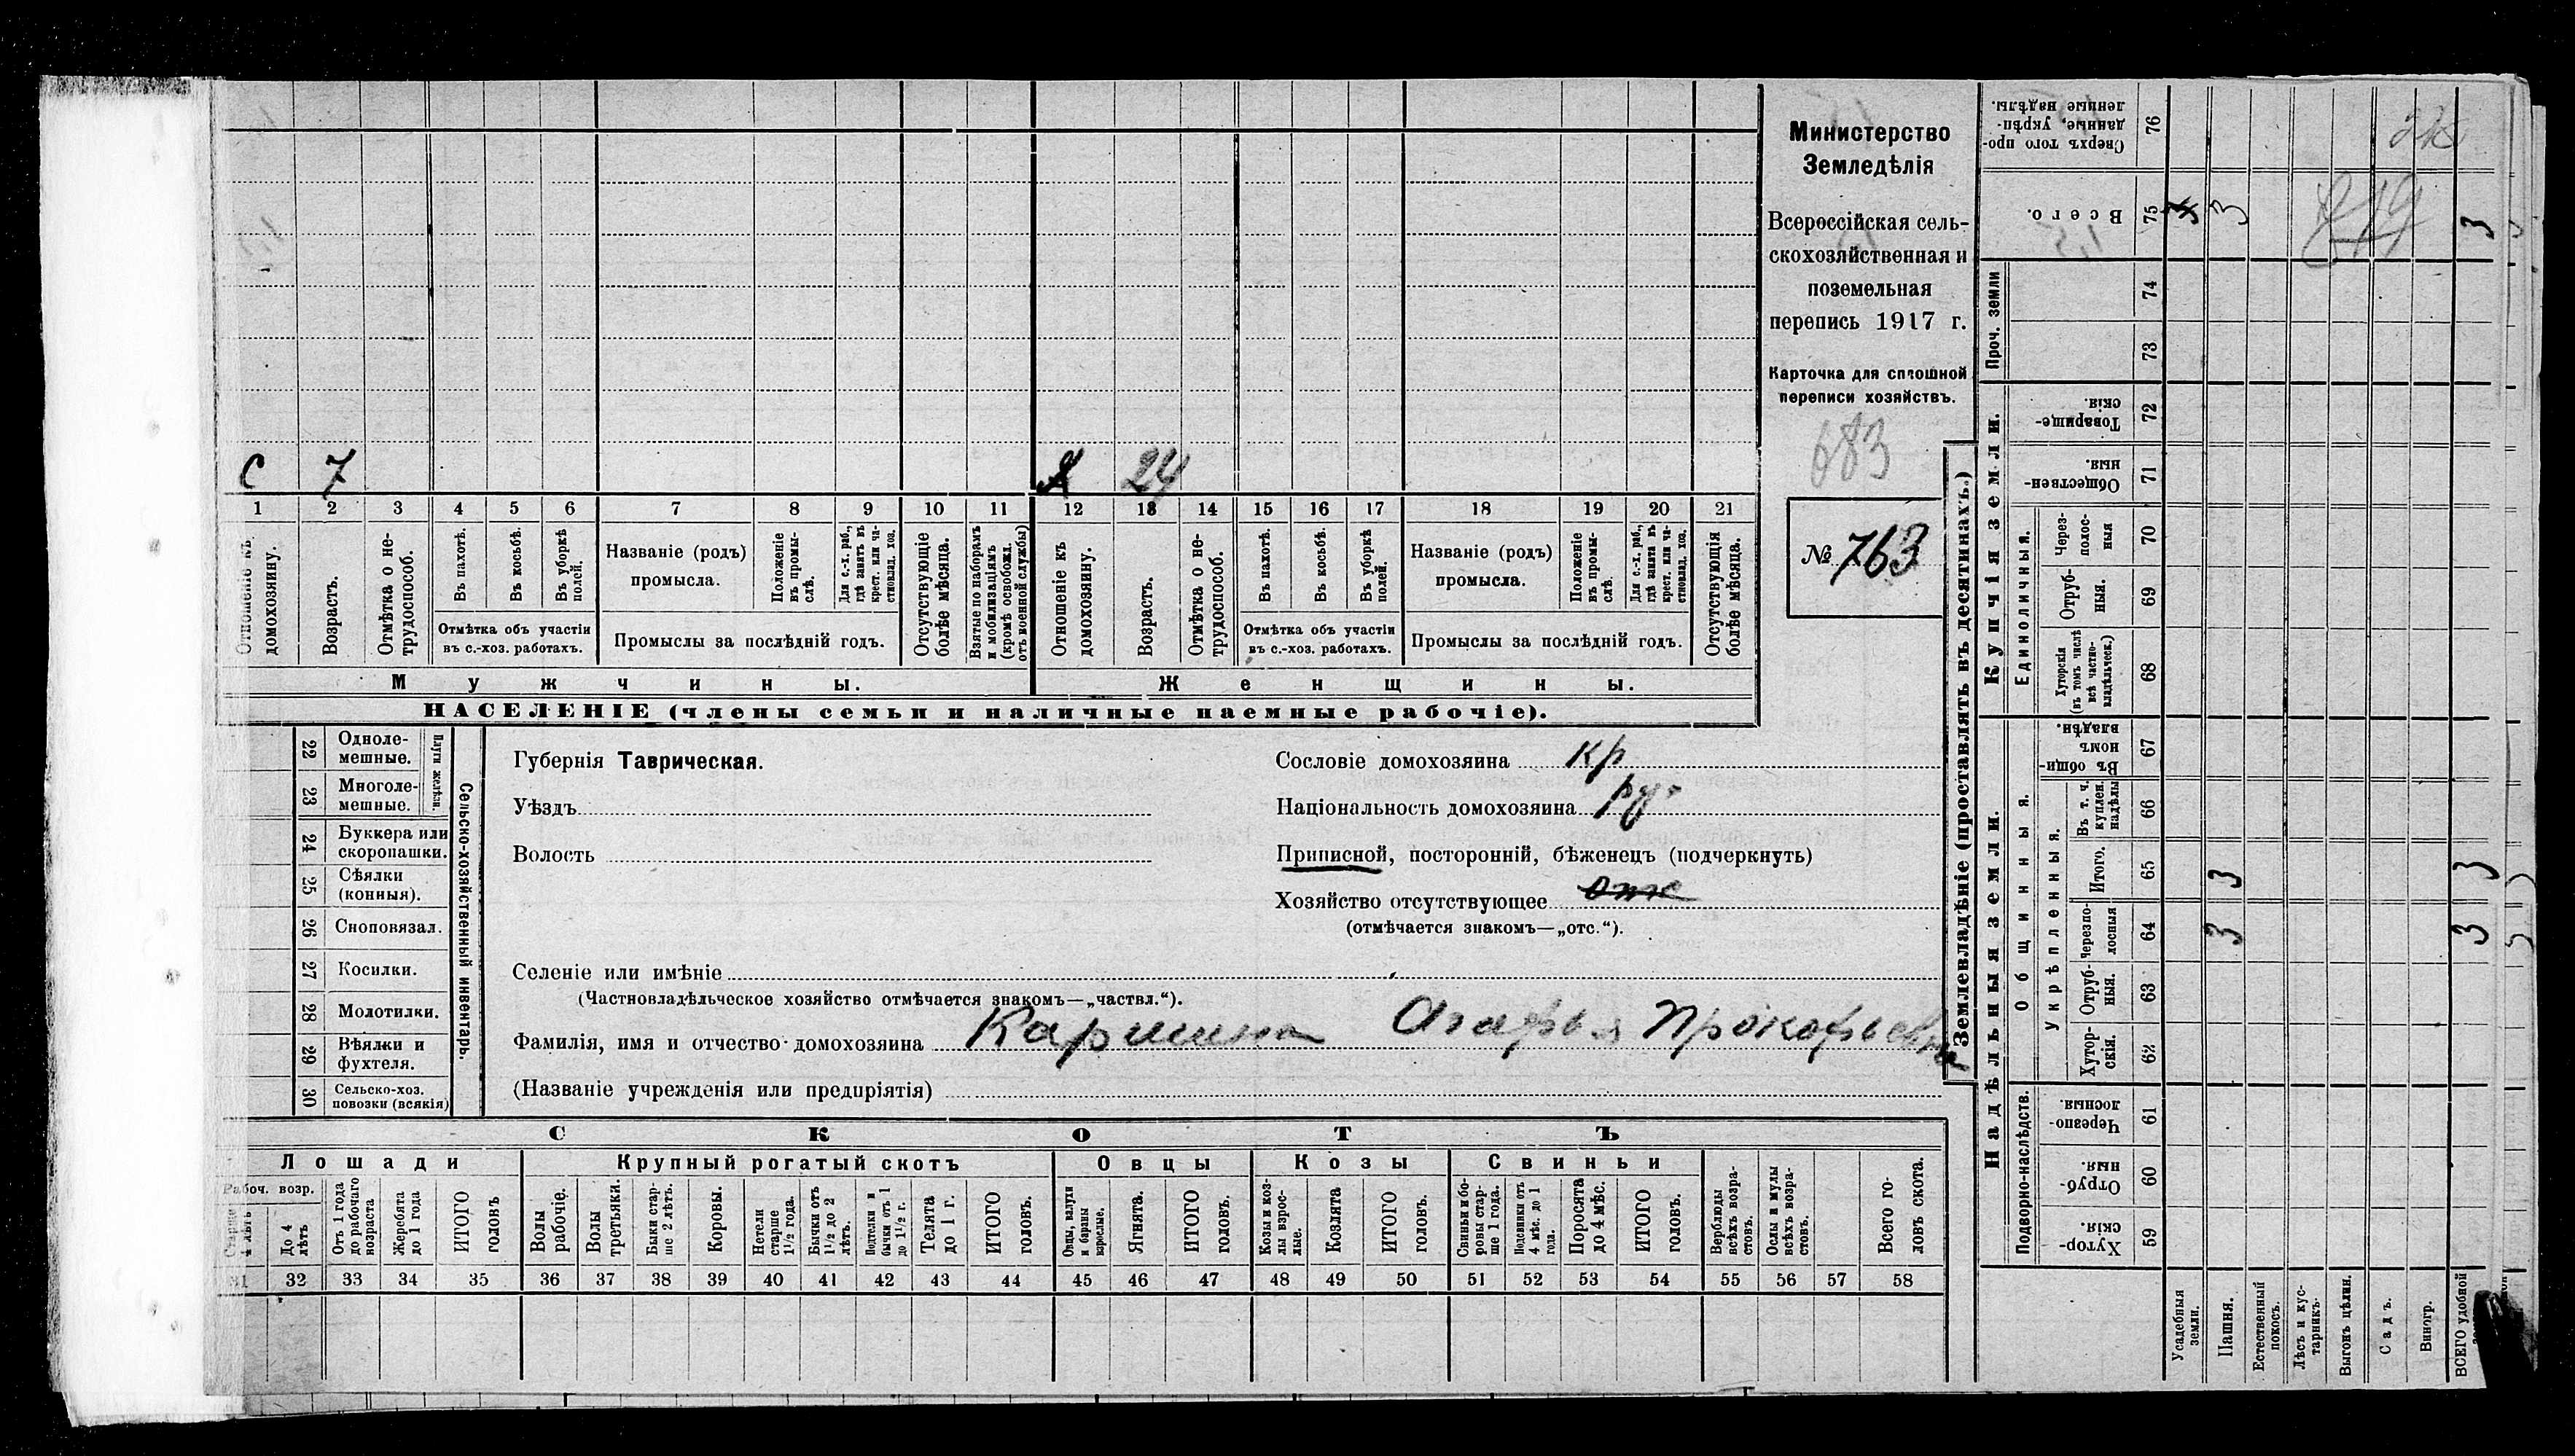 Министерство
Земледѣлія
Всероссійская сель-
скохозяйственная и
поземельная
перепись 1917 г.
Карточка для сплошной
переписи хозяйствъ.
683
№ 763
С 7
Х 24
1 2 3 4 5 6 7 8 9 10 11 12 13 14 15 16 17 18 19 20 21
Отношеніе къ домохозяину.
Возрастъ.
Отмѣтка о не-трудоспособ.
Въ пахотѣ.
Въ косьбѣ.
Въ уборкѣ полей.
Отмѣтка объ участіи
въ с.-хоз. работахъ.
Названіе (родъ)
промысла.
Положеніе въ промы-слѣ.
Для с.-х. раб., гдѣ занятъ въ крест. или ча-стновлад. хоз.
Промыслы за послѣдній годъ.
Отсутствующіе болѣе мѣсяца.
Взятые по наборамъ и мобилизаціямъ (кромѣ освобожд. отъ военной службы)
Отношеніе къ домохозяину.
Возрастъ.
Отмѣтка о не-трудоспособ.
Въ пахотѣ.
Въ косьбѣ.
Въ уборкѣ полей.
Отмѣтка объ участіи
въ с.-хоз. работахъ.
Названіе (родъ)
промысла.
Положеніе въ промы-слѣ.
Для с.-х. раб., гдѣ занята въ крест. или ча-стновлад. хоз.
Промыслы за послѣдній годъ.
Отсутствующія болѣе мѣсяца.
Мужчины. Женщины.
НАСЕЛЕНІЕ (члены семьи и наличные наемные рабочіе).
Сельско-хозяйственный инвентарь.
Плуги желѣзн.
22 Одноле-мешные.
23 Многоле-мешные.
24 Буккера или скоропашки.
25 Сѣялки (конныя).
26 Сноповязал.
27 Косилки.
28 Молотилки.
29 Вѣялки и фухтеля.
30 Сельско-хоз. повозки (всякія)
Губернія Таврическая.
Уѣздъ
Волость
Сословіе домохозяина кр
Національность домохозяина ру
Приписной, посторонній, бѣженецъ (подчеркнуть)
Хозяйство отсутствующее
(отмѣчается знакомъ—„отс.“).
Селеніе или имѣніе
(Частновладѣльческое хозяйство отмѣчается знакомъ—„частвл.“).
Фамилія, имя и отчество домохозяина Агафья Прокофьевна
(Названіе учрежденія или предпріятія)
СКОТЪ
Лошади Крупный рогатый скотъ Овцы Козы Свиньи
Рабоч. возр.
Старше 4 лѣтъ
До 4 лѣтъ
Отъ 1 года до рабочаго возраста
Жеребята до 1 года
ИТОГО головъ
Волы рабочіе.
Волы третьяки.
Быки стар-ше 2 лѣтъ.
Коровы.
Нетели старше 1½ года.
Бычки отъ 1½ до 2 лѣтъ.
Подтелки и бычки отъ 1 до 1½ г.
Телята до 1 г.
ИТОГО головъ.
Овцы, валухи и бараны взрослые.
Ягнята.
ИТОГО головъ.
Козы и коз-лы взрос-лые.
Козлята
ИТОГО головъ.
Свиньи и бо-ровы стар-ше 1 года.
Подсвинки отъ 4 мѣс. до 1 года.
Поросята до 4 мѣс.
ИТОГО головъ.
Верблюды всѣхъ возра-стовъ.
Ослы и мулы всѣхъ возра-стовъ.
Всего го-ловъ скота.
31 32 33 34 35 36 37 38 39 40 41 42 43 44 45 46 47 48 49 50 51 52 53 54 55 56 57 58
Землевладѣніе (проставлять въ десятинахъ.)
Надѣльныя земли.
Купчія земли.
Проч. земли
Подворно-наслѣдств.
Общинныя.
Укрѣпленныя.
Единоличныя.
Сверхъ того про-данные, укрѣп-ленные надѣлы. 76
Всего. 75 3 3
74
73
Товарище-скія. 72
Обществен-ныя. 71
Через-полос-ныя 70
Отруб-ныя. 69
Хуторскія (въ томъ числѣ всѣ частно-владѣльческ.) 68
Въ общи-номъ владѣн. 67
Въ т. ч. куплен. надѣлы 66
Итого. 65 3 3
Черезпо-лосныя 64 3 3
Отруб-ныя. 63
Хутор-скія. 62
Черезпо-лосныя. 61
Отруб-ныя. 60
Хутор-скія. 59
Усадебныя земли.
Пашня.
Естественный покосъ.
Лѣсъ и кус-тарникъ.
Выгонъ цѣлин.
Садъ.
Виногр.
ВСЕГО удобной